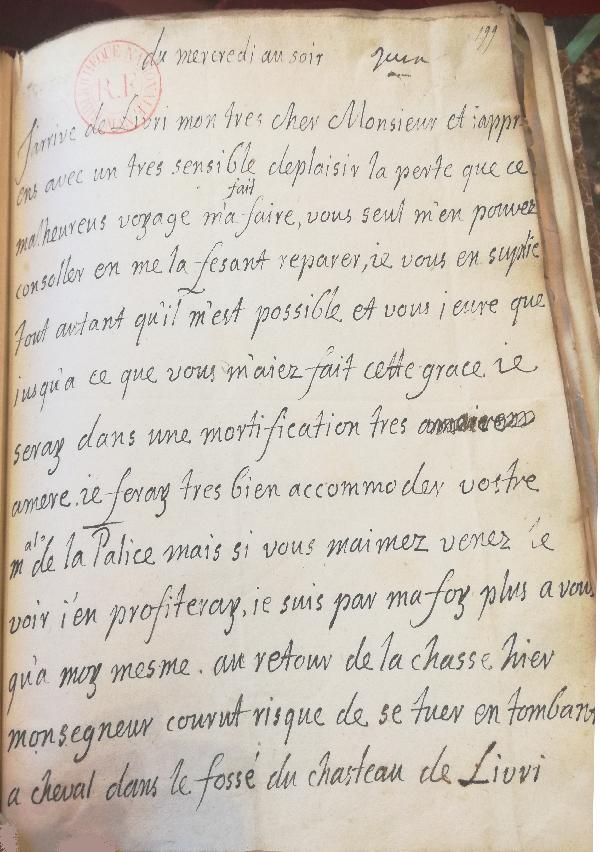 199
du mercredi au soir juin
BIBLIOTHEQUE NATIONALE R.F.
J'arrive de Livri mon tres cher Monsieur et i'appr-
ens avec un tres sensible deplaisir la perte que ce
fait
malheureus voyage m'a faire, vous seul m'en pouvez
consoller en me la fesant reparer, ie vous en suplie
tout autant qu'il m'est possible et vous ieure que
iusqu'a ce que vous m'aiez fait cette grace ie
seray dans une mortification tres
amere. ie feray tres bien accommoder vostre
m.al de la Palice mais si vous maimez venez le
voir i'en profiteray, ie suis par ma foy plus a vous
qu'a moy mesme. au retour de la chasse hier
monsegneur courut risque de se tuer en tombant
a cheval dans le fossé du chasteau de Livri